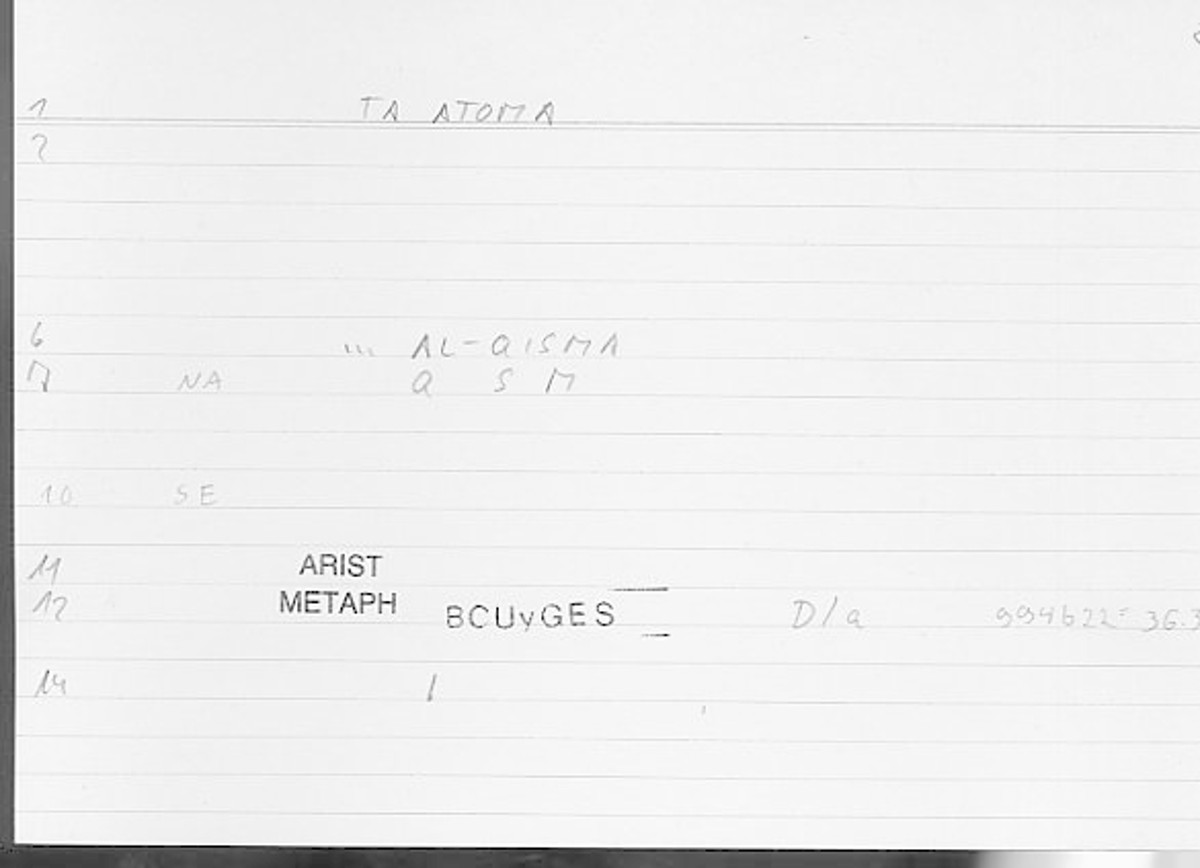 1 TA ATOMA
2
6 ... AL-QISMA
7 NA Q S M
10 SE
11 ARIST
12 METAPH BCUyGES D/a 994b22=36.3
14 /